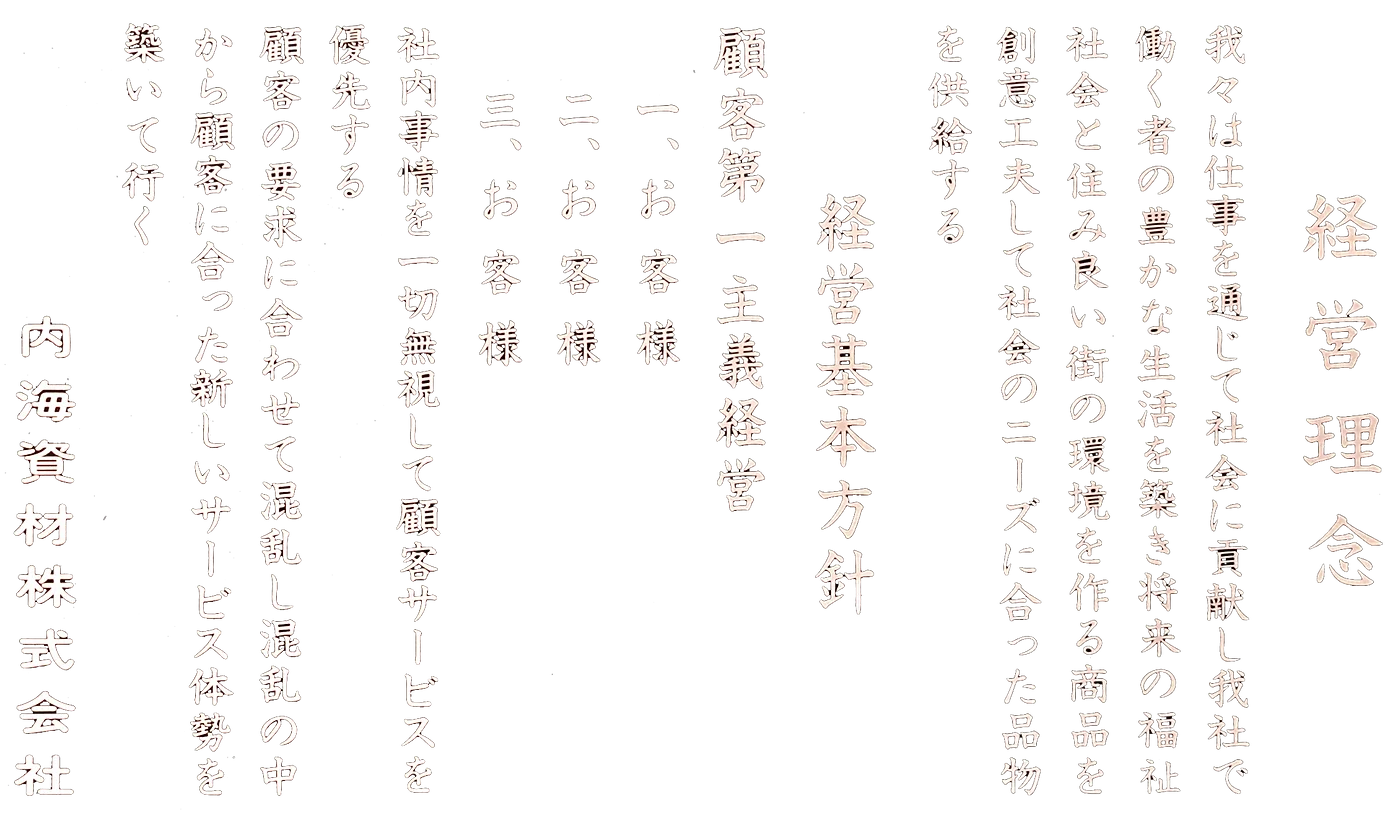 経営理念
我々は仕事を通じて社会に貢献し我社で
働く者の豊かな生活を築き将来の福祉
社会と住み良い街の環境を作る商品を
創意工夫して社会のニーズに合った品物
を供給する
経営基本方針
顧客第一主義経営
一、お客様
二、お客様
三、お客様
社内事情を一切無視して顧客サービスを
優先する
顧客の要求に合わせて混乱し混乱の中
から顧客に合った新しいサービス体勢を
築いて行く
内海資材株式会社